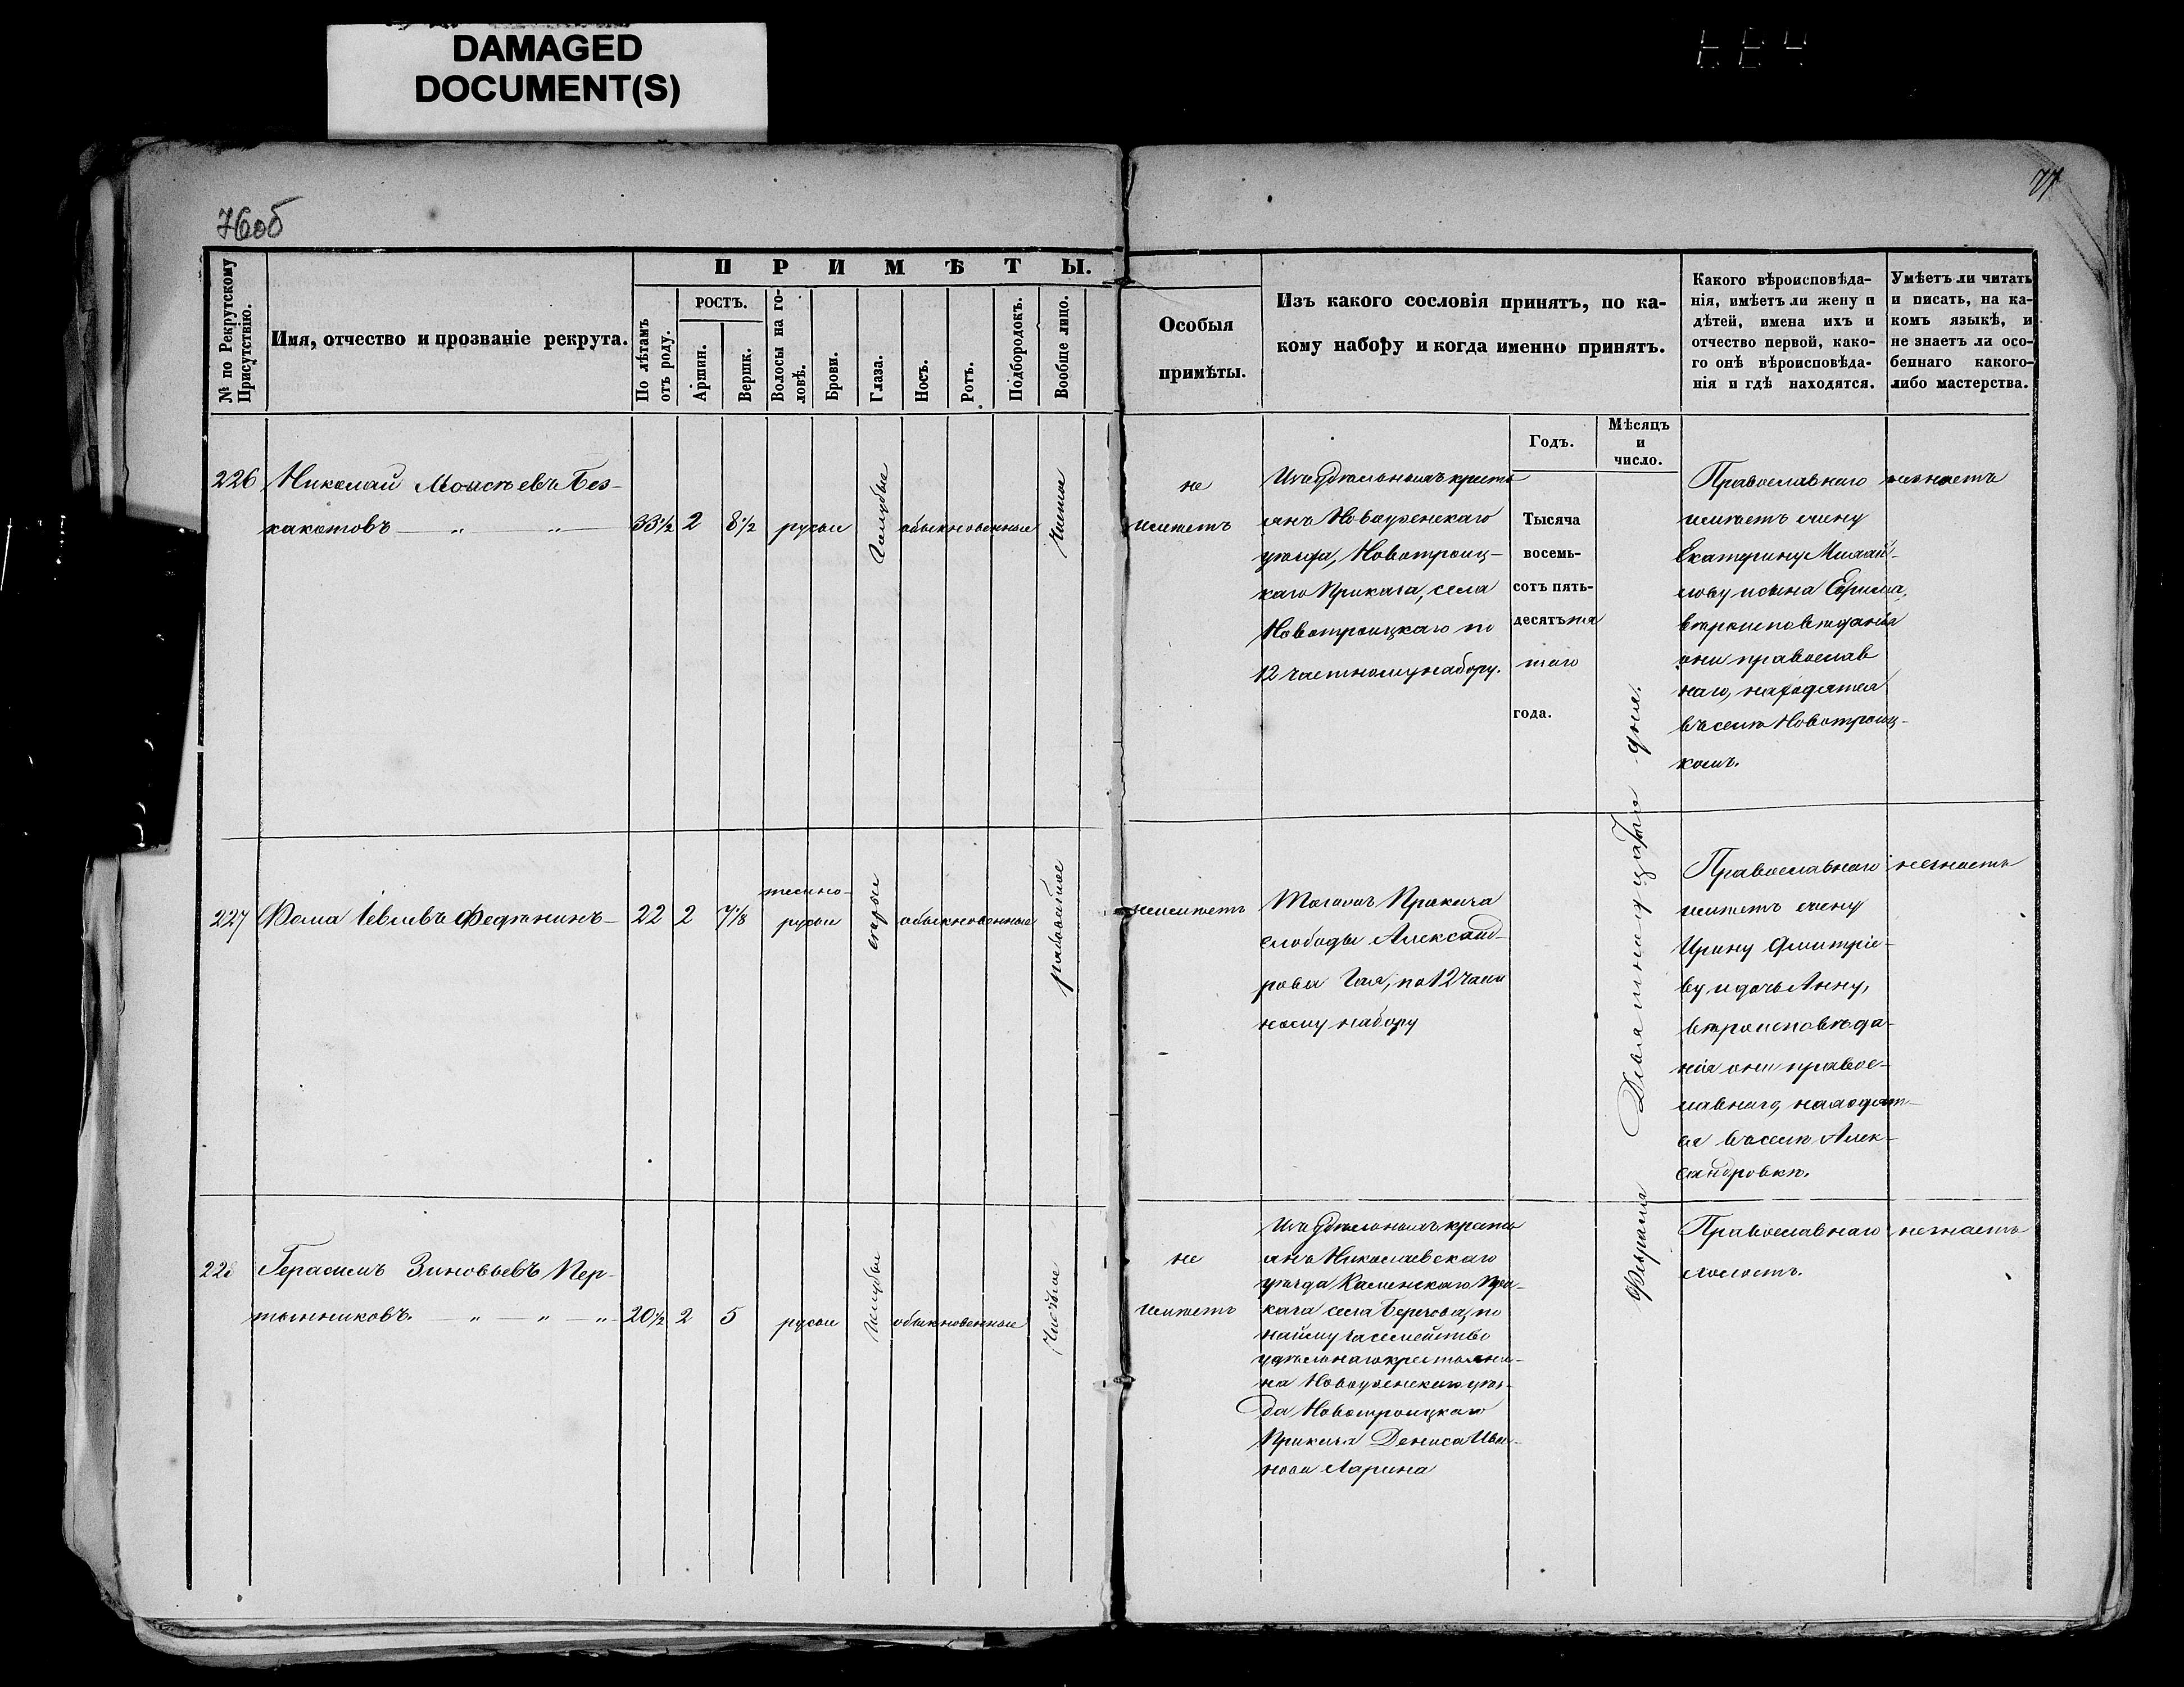 DAMAGED
DOCUMENT(S)
76об
77
№ по Рекрутскому Присутствію.
Имя, отчество и прозваніе рекрута.
ПРИМѢТЫ.
По лѣтамъ отъ роду.
РОСТЪ.
Аршин.
Вершк.
Волосы на головѣ.
Брови.
Глаза.
Носъ.
Ротъ.
Подбородокъ.
Вообще лицо.
Особыя
примѣты.
Изъ какого сословія принятъ, по ка-
кому набору и когда именно принятъ.
Какого вѣроисповѣда-
нія, имѣетъ ли жену и
дѣтей, имена ихъ и
отчество первой, како-
го онѣ вѣроисповѣда-
нія и гдѣ находятся.
Умѣетъ ли читать
и писать, на ка-
комъ языкѣ, и
не знаетъ ли осо-
беннаго какого-
либо мастерства.
Годъ.
Мѣсяцъ
и
число.
226 Николай Моисѣевъ Без-
какотовъ — „ — „ — 33½ 2 8½ русые голубые обыкновенные чистое
не
имѣетъ
Изъ Удѣльныхъ кресть
янъ Новоузенскаго
уѣзда, Новотроиц-
каго Приказа, села
Новотроицкаго по
12 частному набору.
Тысяча
восемь-
сотъ пять-
десятъ пя
таго
года.
Февраля Девятнадцатаго дня.
Православнаго
имѣетъ жену
Екатерину Михай-
лову и сына Ефима,
вѣроисповѣданія
они православ
наго, находятся
въ селѣ Новотроиц-
комъ.
незнаетъ
227 Фома Іевлевъ Федянинъ — 22 2 7⅛ темно-
русые серые обыкновенные рябоватое
неимѣетъ
Тогожъ Приказа
слободы Александ-
рова Гая, по 12 част
ному набору
Православнаго
имѣетъ жену
Ирину Дмитріе-
ву и дочь Анну,
вѣроисповѣда-
нія они правос-
лавнаго, находят-
ся въ селѣ Алек-
сандровкѣ.
незнаетъ
228 Герасимъ Зиновьевъ Пер-
тянниковъ. — „ — „ — „ 20½ 2 5 русые голубые обыкновенные чистое
не
имѣетъ
Изъ Удѣльныхъ кресть
янъ Николаевскаго
уѣзда Каменскаго При-
каза села Березова, по
найму за семейство
удѣльнаго крестьяни-
на Новоузенскаго уѣз-
да Новотроицкаго
Приказа Дениса Ива-
нова Ларина
Православнаго
холостъ.
незнаетъ